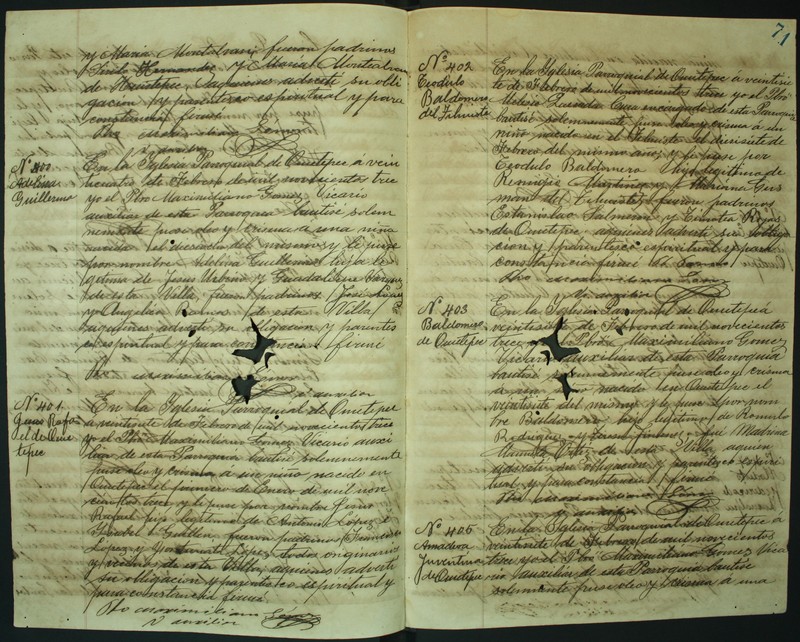 y Maria Montalvan, fueron padrinos
y Maria Montalvan
de Ometepec, aquienes advertí su obli
gacion y parentesco espiritual y para
constancia firmé
Pbo Maximiliano Gomez
V. auxiliar
Nº 400
Adelina
Guillerma
En la Iglesia Parroquial de Ometepec á vein
de Febrero de mil novecientos trece
yo el Pbro Maximiliano Gomez Vicario
auxiliar de esta Parroquia bautisé solem
nemente puse oleo y crisma a una niña
nacida el del mismo y le puse
por nombre Adelina Guillerma hija le
gitima de Jesus y Guadalupe
de esta Villa, fueron padrinos José
y Angela de esta Villa,
aquienes advertí su obligacion y parentes
co espiritual y para constancia firmé
Pbo Maximiliano Gomez
V. auxiliar
Nº 401.
Rafa
el de Ome
tepec
En la Iglesia Parroquial de Ometepec
á veintisiete de Febrero de mil novecientos trece
yo el Pbro Maximiliano Gomez Vicario auxi
liar de esta Parroquia bautisé solemnemente
puse oleo y crisma á un niño nacido en
Ometepec el primero de Enero de mil nove
cientos trece y le puse por nombre
Rafael hijo legitimo de Antonio Lopez é
Isabel Guillen fueron padrinos Francisco
Lopez y Lopez todos originarios
y vecinos de esta Villa, aquienes advertí
su obligacion y parentesco espiritual y
para constancia firmé
Pbo Maximiliano Gomez
V. auxiliar
71
Nº 402
Teodulo
Baldomero
del
En la Iglesia Parroquial de Ometepec á veintisie
te de Febrero de mil novecientos trece yo el Pbro
Cura encargado de esta Parroquia
bautisé solemnemente puse oleo y crisma á un
niño nacido en el el diecisiete de
Febrero del mismo año, y le puse por
Teodulo Baldomero hijo legitimo de
Remigio Martinez y
fueron padrinos
Estanislao y Rojas
de Ometepec, aquienes advertí su obliga
cion y parentesco espiritual y para
constancia firmé
Pbo Maximiliano Gomez
V. auxiliar
Nº 403
Baldomero
de Ometepec
En la Iglesia Parroquial de Ometepec á
veintisiete de Febrero de mil novecientos
trece yo el Pbro Maximiliano Gomez
Vicario auxiliar de esta Parroquia
bautisé solemnemente puse oleo y crisma
á un niño nacido en Ometepec el
veintisiete del mismo y le puse por nom
bre Baldomero hijo legitimo de Romulo
Rodriguez y fué Madrina
Manuela de esta Villa, aquien
advertí su obligacion y parentesco espiri
tual y para constancia firmé
Pbo Maximiliano Gomez
V. auxiliar
Nº 405
Amadora
Juventina
de Ometepec
En la Iglesia Parroquial de Ometepec á
veintisiete de Febrero de mil novecientos
trece yo el Pbro Maximiliano Gomez Vica
rio auxiliar de esta Parroquia bautisé
solemnemente puse oleo y crisma a una